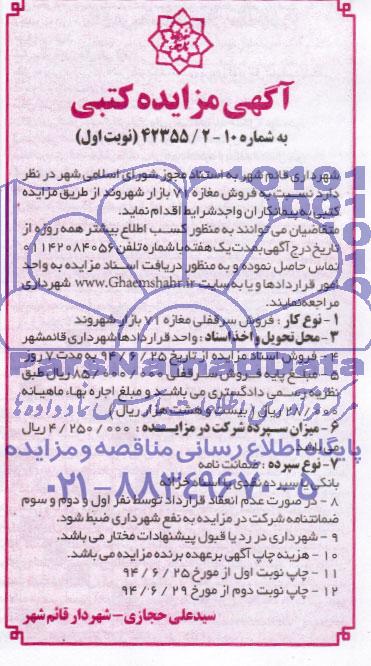 آگهی مزایده کتبی
به شماره ۱۰-۲/ ۴۲۳۵۵ (نوبت اول)
شهرداری قائم شهر به استناد مجوز شورای اسلامی شهر در نظر
دارد نسبت به فروش مغازه ۷۱ بازار شهروند از طریق مزایده
کتبی به پیمانکاران واجد شرایط اقدام نماید.
متقاضیان می توانند به منظور کسب اطلاع بیشتر همه روزه از
تاریخ درج آگهی بمدت یک هفته با شماره تلفن ۰۱۱۴۲۰۸۴۰۵۶
تماس حاصل نموده و به منظور دریافت اسناد مزایده به واحد
امور قراردادها و یا به سایت www.Ghaemshahr.ir شهرداری
مراجعه نمایند.
۱- نوع کار : فروش سرقفلی مغازه ۷۱ بازار شهروند
۳- محل تحویل و اخذ اسناد : واحد قراردادها شهرداری قائمشهر
۴- فروش اسناد مزایده از تاریخ ۹۴/۶/۲۵ به مدت ۷ روز
۵- مبلغ پایه فروش سرقفلی ۸۵/۰۰۰/۰۰۰ ریال طبق
نظریه رسمی دادگستری می باشد و مبلغ اجاره بهاء ماهیانه
ریال (بیست و هشت هزار ریال)
۶- میزان سپرده شرکت در مزایده : ۴/۲۵۰/۰۰۰ ریال
می باشد
۷- نوع سپرده : ضمانت نامه
بانکی یا سپرده نقدی یا اسناد خزانه
۸- در صورت عدم انعقاد قرارداد توسط نفر اول و دوم و سوم
ضمانتنامه شرکت در مزایده به نفع شهرداری ضبط شود.
۹- شهرداری در رد یا قبول پیشنهادات مختار می باشد.
۱۰- هزینه چاپ آگهی بر عهده برنده مزایده می باشد.
۱۱- چاپ نوبت اول از مورخ ۹۴/۶/۲۵
۱۲- چاپ نوبت دوم از مورخ ۹۴/۶/۲۹
سید علی حجازی – شهردار قائم شهر
پایگاه اطلاع رسانی مناقصه و مزایده
۰۲۱-۸۸۳۴۹۶۷۰-۵